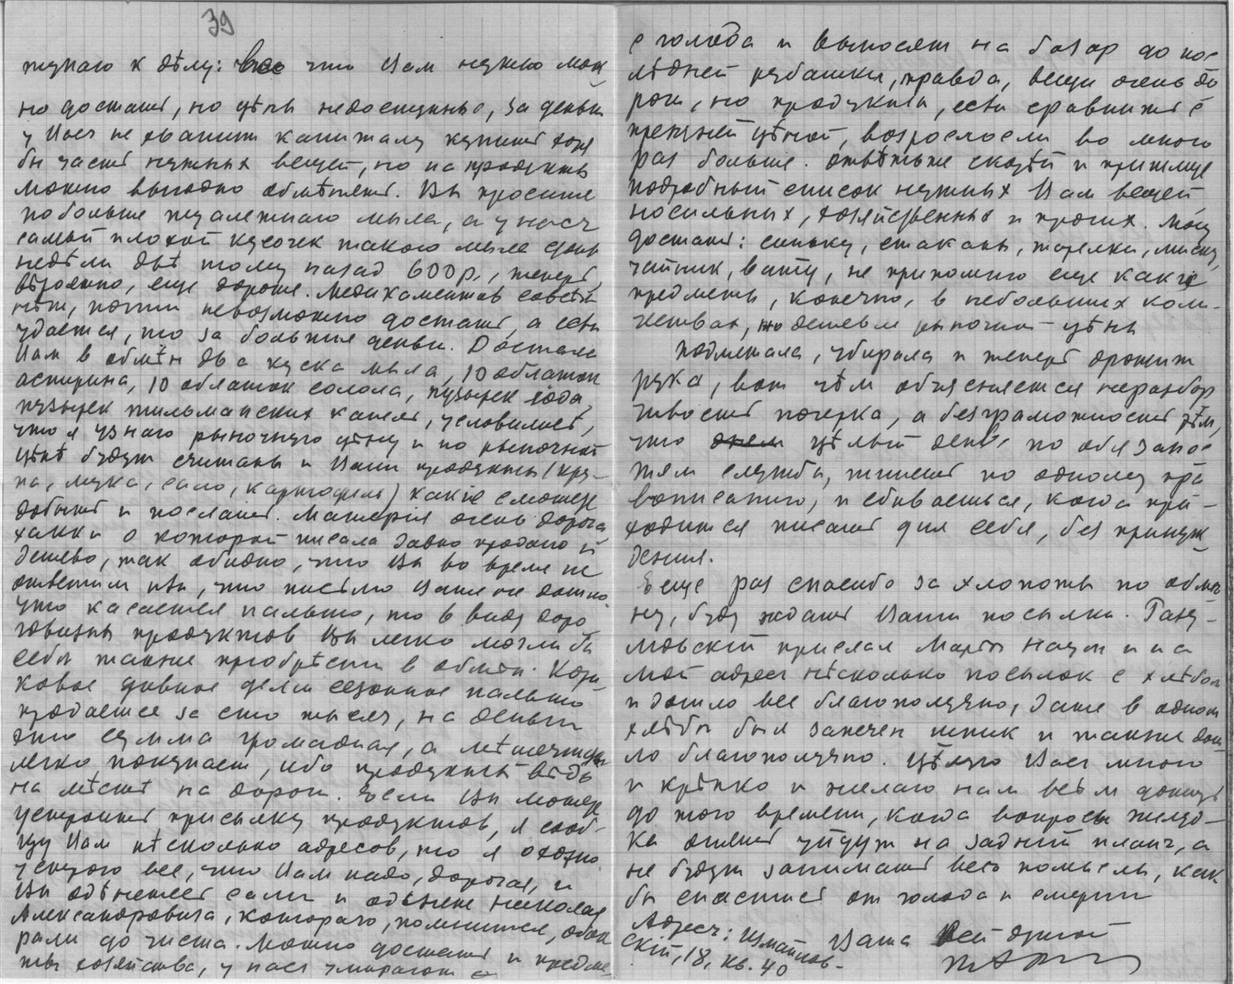 39
ступаю к дѣлу: все что Вам нужно мож-
но достать, но цѣны недоступные, за деньги
у Васъ не хватит капиталу купить хотя
бы часть нужных вещей, но на продукты
можно выгодно обмѣнять. Вы просите
побольше туалетнаго мыла, а у насъ
самый плохой кусочек такого мыла стоил
недѣли двѣ тому назад 600 р., теперь,
вѣроятно, еще дороже. Медикаментов совсѣм
нѣт, почти невозможно достать, а если
удается, то за большие деньги. Достала
Вам в обмѣн два куска мыла, 10 облаток
аспирина, 10 облаток салола, пузырек іода,
пузырек капель, условились,
что я узнаю рыночную цѣну и по рыночной
цѣнѣ будут считаны и Ваши продукты (кру-
па, мука, сало, картофель) какіе сможете
добыть и послать. Матерія очень дорога
о которой писала давно продано и
дешево, так обидно, что Вы во время не
отвѣтили или, что письмо Ваше не дошло
что касается пальто, то в виду доро-
говизны продуктов Вы легко могли бы
себѣ также пріобрѣсти в обмѣн.
ковое дивное сезонное пальто
продается за сто тысяч, на деньги
это сумма громадная, а
легко покупает, ибо продукты вѣдь
на мѣстѣ не дороги. Если Вы можете
устроить присылку продуктов, я сооб-
щу Вам нѣсколько адресов, то я охотно
устрою все, что Вам надо, дорогая, и
Вы одѣнетесь сами и одѣнете Николая
Александровича, котораго, помнится, обок-
рали до чиста. Можно достать и предме-
ты хозяйства, у нас умирают
с голода и выносят на базар до пос-
лѣдней рубашки, правда, вещи очень до-
роги, но продукты, если сравнить с
прежней цѣной, возросло во много
раз больше. Отвѣтьте скорѣй и пришлите
подробный список нужных Вам вещей
носильных, хозяйственных и прочих. Могу
достать: синьку, стаканы, тарелки, миску,
чайник, вату, не припомню еще какіе
предметы, конечно, в небольших коли-
чествах, но дешевле рыночной цѣны
Подметала, убирала и теперь дрожит
рука, вот чѣм объясняется неразбор-
чивость почерка, а безграмотность тѣм,
что цѣлый день по обязанос-
тям службы, пишешь по одному пра-
вописанию, и сбиваешься, когда при-
ходится писать для себя, без принуж-
дения.
Еще раз спасибо за хлопоты по обмѣ-
ну, буду ждать Ваши посылки.
мовскій прислал и на
мой адрес нѣсколько посылок с хлѣбом
и дошло все благополучно, даже в одном
хлѣбѣ был запечен шпик и также дош-
ло благополучно. Цѣлую Васъ много
и крѣпко и желаю нам всѣм дожить
до того времени, когда вопросы желуд-
ка опять уйдут на задній план, а
не будут занимать весь помысл, как
бы спастись от голода и смерти
Адрес: Измайлов-
скій, 18, кв. 40
Ваша всей душой